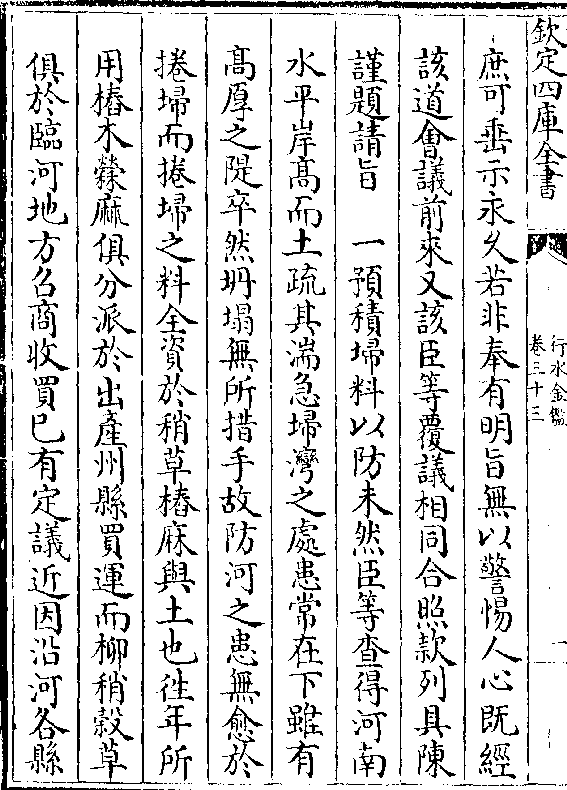 欽定四庫全書
行水金鑑
卷三十三
庶可垂示永久若非奉有明旨無以警惕人心既經
該道會議前來又該臣等覆議相同合照款列具陳
謹題請旨　一預積埽料以防未然臣等查得河南
水平岸髙而土疏其湍急埽灣之處患常在下雖有
髙厚之隄卒然坍塌無所措手故防河之患無愈於
捲埽而捲埽之料全資於稍草樁麻與土也徃年所
用樁木檾麻俱分派於出產州縣買運而柳稍榖草
俱於臨河地方召商收買已有定議近因沿河各縣